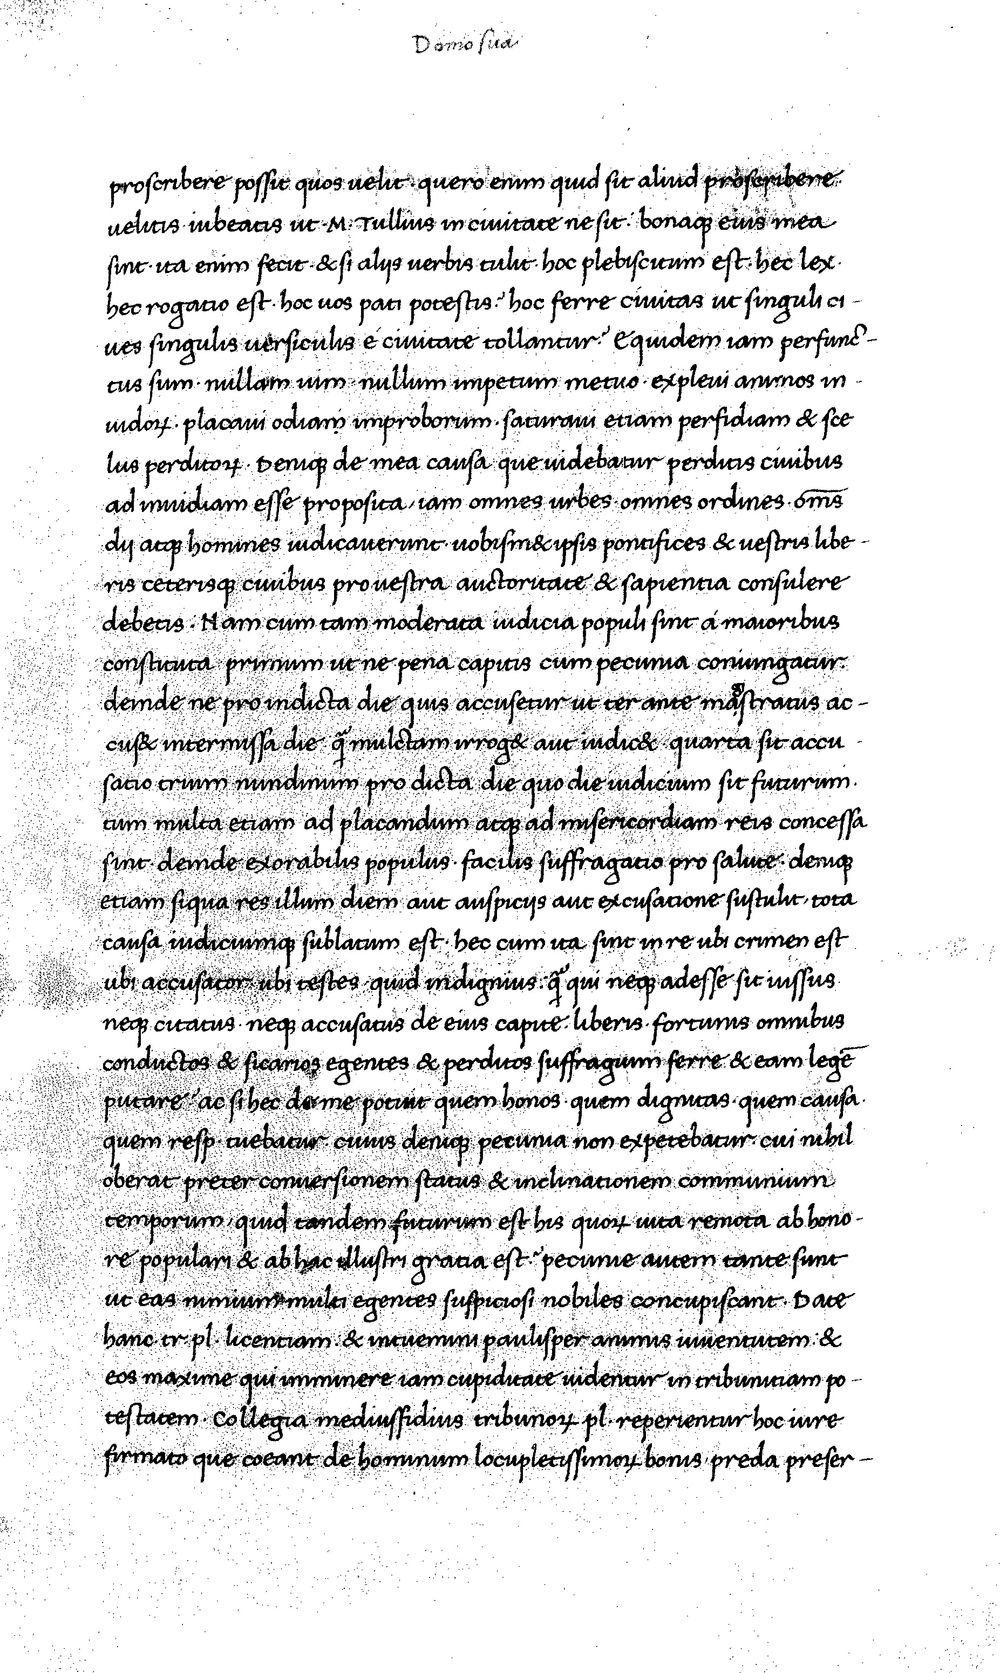 Domo sua
proscribere possit quos uelit · quero enim quid sit aliud proscribere·
uelitis iubeatis ut ·M· Tullius in ciuitate ne sit · bonaqꝫ eius mea
sint · ita enim fecit · & si aliis uerbis tulit · hoc plebiscitum est · hec lex·
hec rogatio est · hoc uos pati potestis? hoc ferre ciuitas ut singuli ci-
ues singulis uersiculis é ciuitate tollantur? Equidem iam perfunc-
tus sum · nullam uim · nullum impetum metuo · expleui animos in-
uidoꝝ · placaui odiam improborum · saturaui etiam perfidiam & sce
lus perditoꝝ · Deniqꝫ de mea causa que uidebatur perditis ciuibus
ad inuidiam esse proposita, iam omnes urbes omnes ordines · om̅s
dii atqꝫ homines iudicauerunt · uobism& ipsis pontifices & uestris libe-
ris ceterisqꝫ ciuibus pro uestra auctoritate & sapientia consulere
debetis · Nam cum tam moderata iudicia populi sint á maioribus
constituta primum ut ne pena capitis cum pecunia coniungatur·
deinde ne pro indicta die quis accusetur ut ter ante magistratus ac-
cus& intermissa die q̃ mulctam irrog& aut iudic& quarta sit accu-
satio trium nundinum pro dicta die quo die iudicium sit futurum·
tum multa etiam ad placandum atqꝫ ad misericordiam reis concessa
sint deinde exorabilis populus · facilis suffragatio pro salute · deniqꝫ
etiam siqua res illum diem aut auspiciis aut excusatione sustulit, tota
causa iudiciumqꝫ sublatum est · hec cum ita sint in re ubi crimen est
ubi accusator ubi testes quid indignius · q̃ qui neqꝫ adesse sit iussus
neqꝫ citatus · neqꝫ accusatus de eius capite · liberis · fortunis omnibus
conductos & sicarios egentes & perditos suffragium ferre & eam legē
putare? ac si hec de me potuit quem honos · quem dignitas · quem causa·
quem resp· tuebatur cuius deniqꝫ pecunia non expetebatur cui nihil
oberat preter conuersionem status & inclinationem communium
temporum, quid tandem futurum est his quoꝝ uita remota ab hono-
re populari & ab hac illustri gratia est? pecunie autem tante sunt
ut eas nimium multi egentes suspiciosi nobiles concupiscant · Date
hanc tr· pl· licentiam · & intuemini paulisper animis iuuentutem &
eos maxime qui imminere iam cupiditate uidentur in tribuniciam po-
testatem · Collegia mediusfidius tribunoꝝ pl· reperientur hoc iure
firmato que coeant de hominum locupletissimoꝝ bonis preda preser-